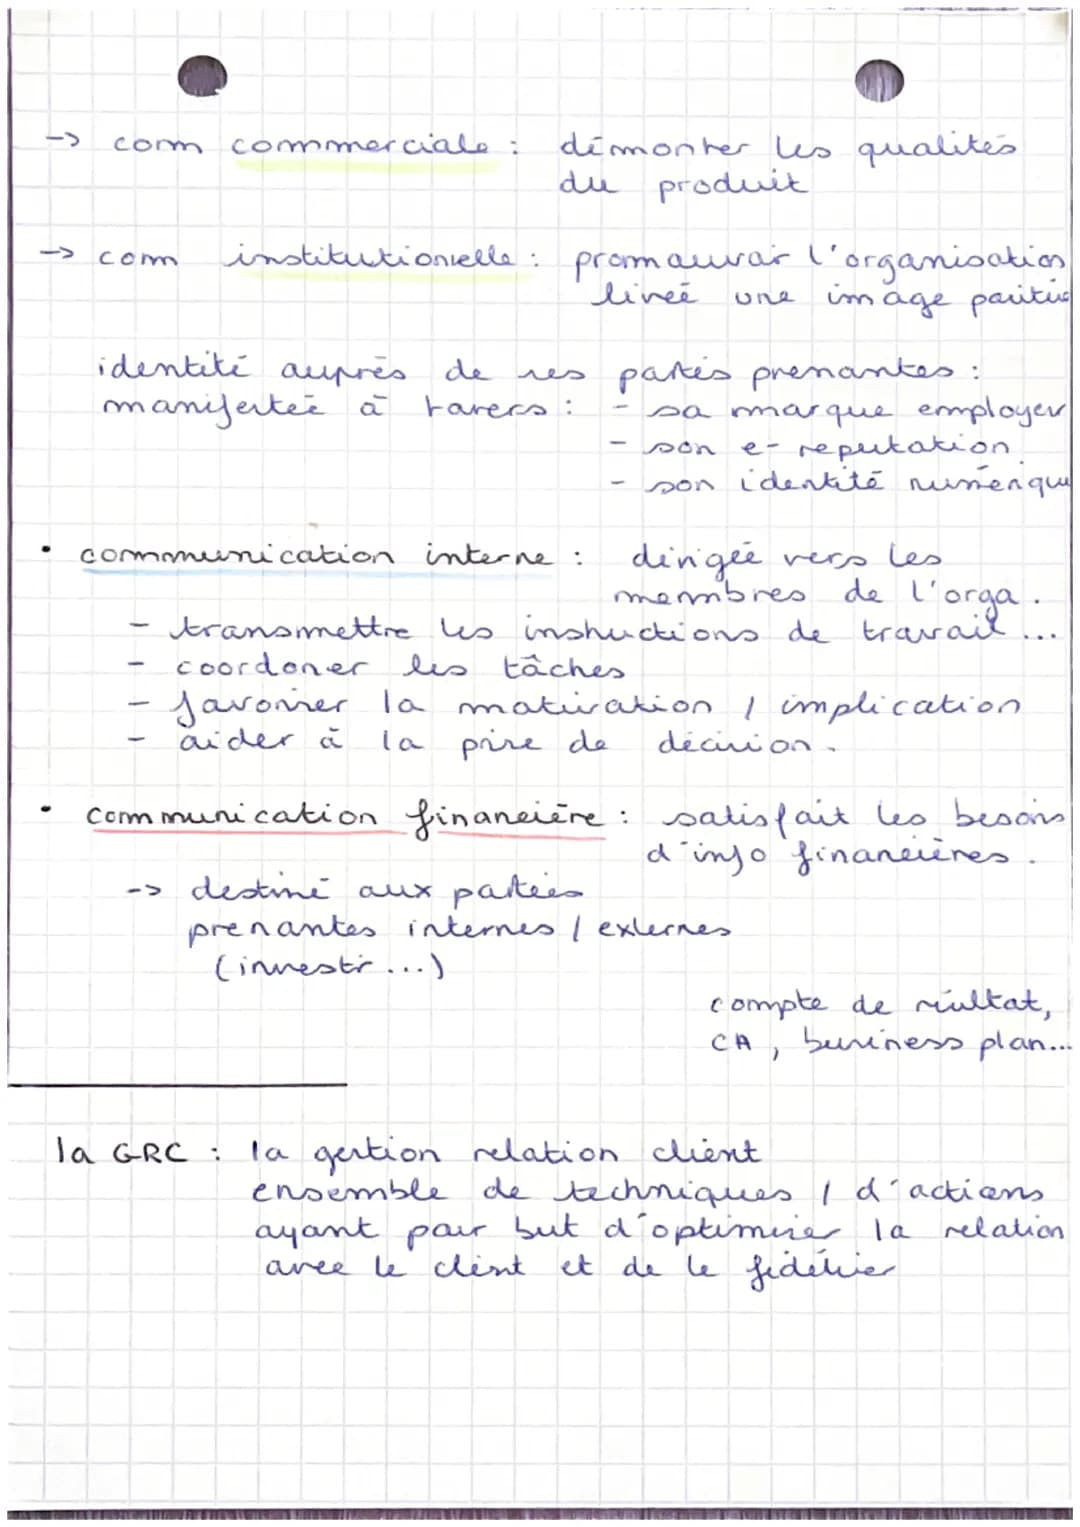 -> com commerciale : démontrer les qualités
du produit
-> com institutionelle : promouvoir l'organisation
livré une image positive
identité auprès de ses partés prenantes :
manifestée à travers : - sa marque employeur
- son e-reputation
- son identité numérique
• communication interne : dirigée vers les
membres de l'orga.
- transmettre les instructions de travail...
- coordoner les tâches
- favoriser la motivation / implication
- aider à la prise de décision.
• communication financière : satisfait les besoins
d'info financières.
-> destiné aux parties
prenantes internes / externes
(investir...)
compte de résultat,
CA, business plan...
la GRC : la gestion relation client
ensemble de techniques / d'actions
ayant pour but d'optimiser la relation
avec le client et de le fidéliser